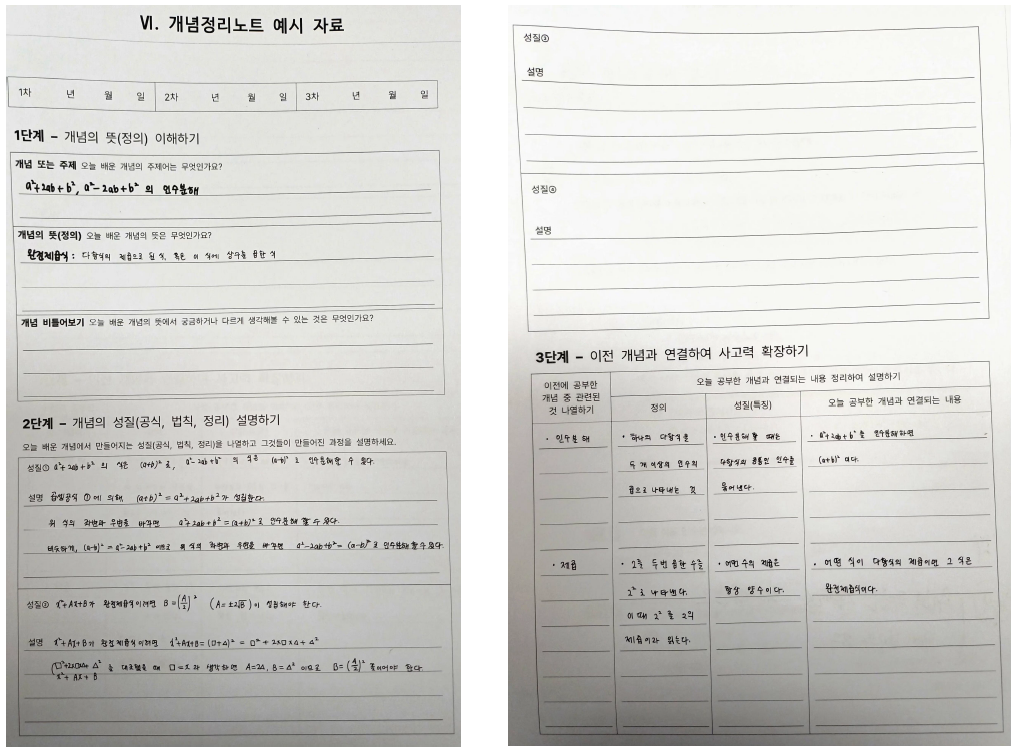 Ⅵ. 개념정리노트 예시 자료
1차 년 월 일 2차 년 월 일 3차 년 월 일
1단계 – 개념의 뜻(정의) 이해하기
개념 또는 주제 오늘 배운 개념의 주제어는 무엇인가요?
a²+2ab+b², a²-2ab+b² 의 인수분해
개념의 뜻(정의) 오늘 배운 개념의 뜻은 무엇인가요?
완전제곱식 : 다항식의 제곱으로 된 식, 혹은 이 식에 상수를 곱한 식
개념 비틀어보기 오늘 배운 개념의 뜻에서 궁금하거나 다르게 생각해볼 수 있는 것은 무엇인가요?
2단계 – 개념의 성질(공식, 법칙, 정리) 설명하기
오늘 배운 개념에서 만들어지는 성질(공식, 법칙, 정리)을 나열하고 그것들이 만들어진 과정을 설명하세요.
성질① a²+2ab+b² 의 식은 (a+b)² 로, a²-2ab+b² 의 식은 (a-b)² 로 인수분해할 수 있다.
설명 곱셈공식 ①에 의해, (a+b)² = a²+2ab+b²가 성립한다.
위 식의 좌변과 우변을 바꾸면 a²+2ab+b² = (a+b)²로 인수분해 할 수 있다.
비슷하게, (a-b)² = a²-2ab+b² 이므로 위 식의 좌변과 우변을 바꾸면 a²-2ab+b² = (a-b)²로 인수분해 할 수 있다.
성질② x²+Ax+B가 완전제곱식이려면 B=(A/2)² (A=±2√B)이 성립해야 한다.
설명 x²+Ax+B가 완전제곱식이려면 x²+Ax+B=(□+△)² = □²+2×□×△+△²
(□²+2×□×△+△² 을 대조했을 때 □=x라 생각하면 A=2△, B=△² 이므로 B=(A/2)² 꼴이어야 한다.
x²+ Ax + B
성질③
설명
성질④
설명
3단계 – 이전 개념과 연결하여 사고력 확장하기
이전에 공부한 개념 중 관련된 것 나열하기
오늘 공부한 개념과 연결되는 내용 정리하여 설명하기
정의 성질(특징) 오늘 공부한 개념과 연결되는 내용
· 인수분해
· 하나의 다항식을
두 개 이상의 인수의
곱으로 나타내는 것
· 인수분해 할 때는
다항식의 공통인 인수를
묶어낸다.
· a²+2ab+b² 을 인수분해하면
(a+b)² 이다.
· 제곱
· 2를 두번 곱한 수를
2²로 나타낸다.
이 때 2² 을 2의
제곱이라 읽는다.
· 어떤 수의 제곱은
항상 양수이다.
· 어떤 식이 다항식의 제곱이면 그 식은
완전제곱식이다.